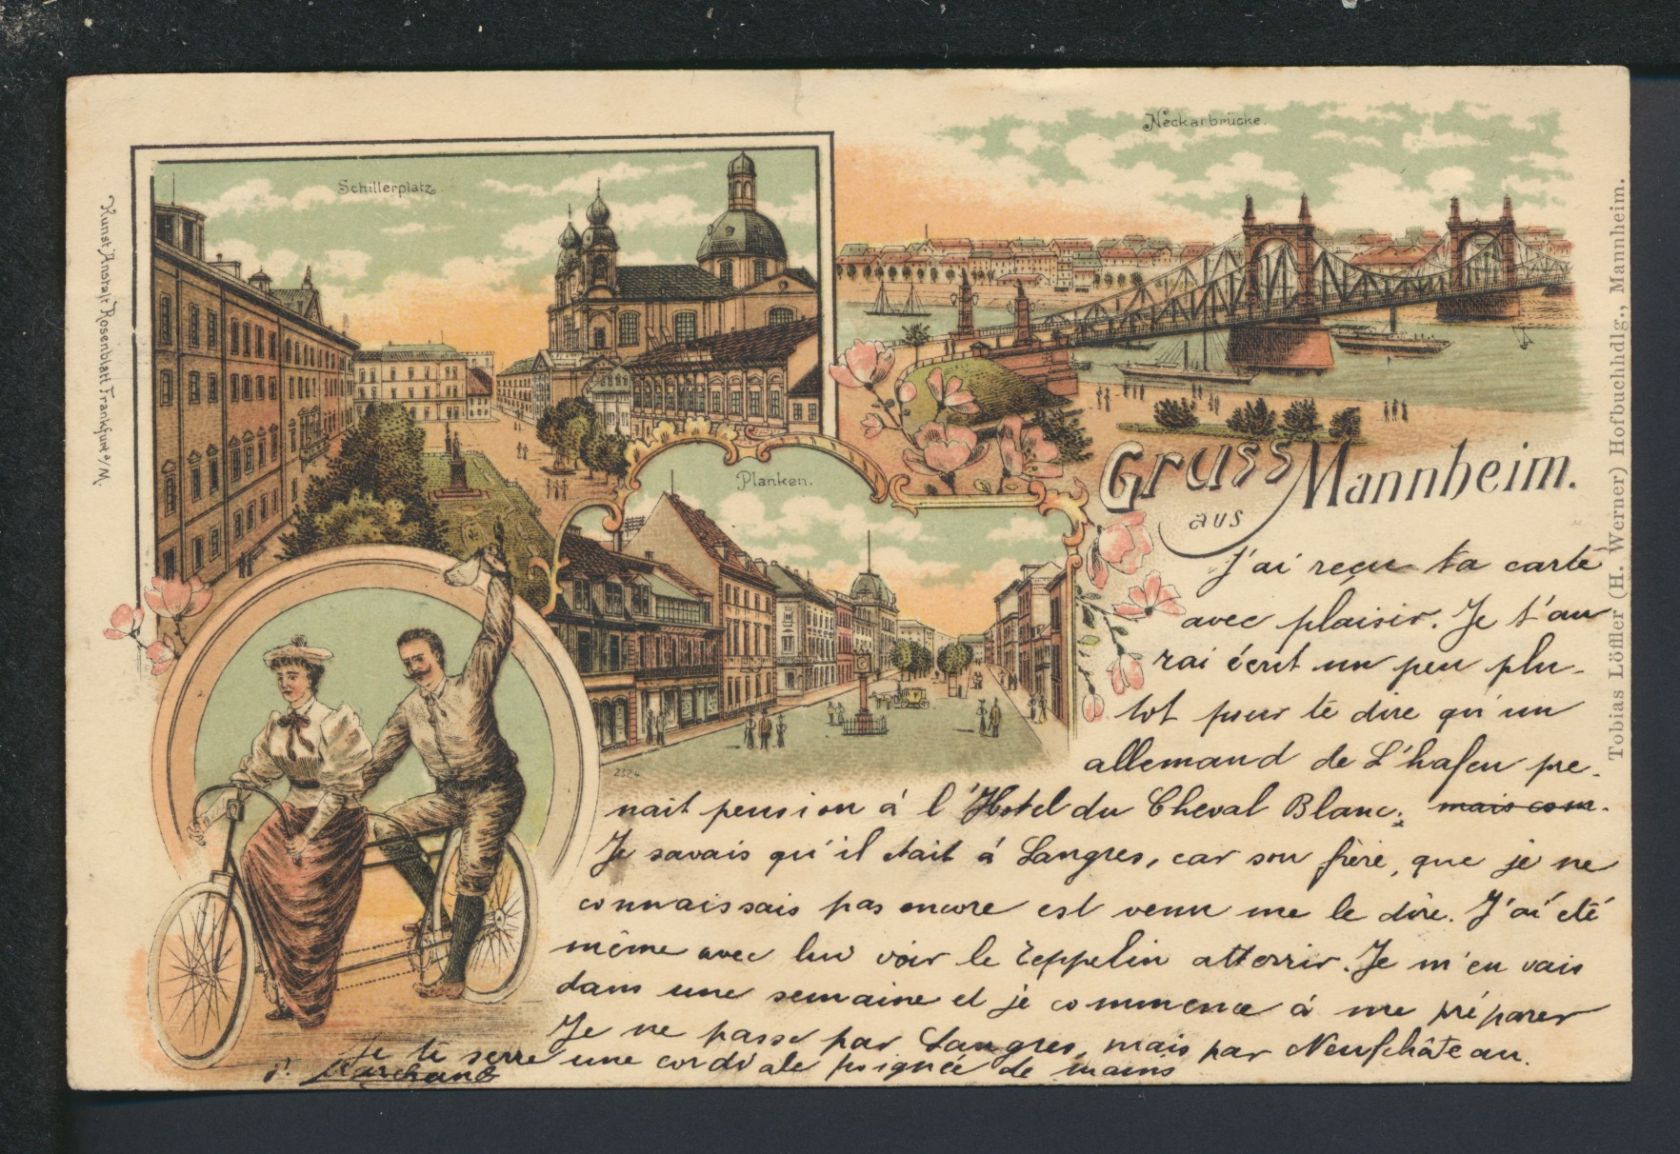 Neckarbrücke.
Schillerplatz.
Kunst Anstalt Rosenblatt Frankfurt a/M.
Planken.
2524
Gruss
aus
Mannheim.
Tobias Löffler (H. Werner) Hofbuchhdlg., Mannheim.
J'ai reçu ta carte
avec plaisir. Je t'au
rai écrit un peu plu-
tot pour te dire qu'un
allemand de L'hafen pre-
nait pension à l'Hotel du Cheval Blanc; mais com.
Je savais qu'il était à Langres, car son frère, que je ne
connaissais pas encore est venu me le dire. J'ai été
même avec lui voir le Zeppelin atterrir. Je m'en vais
dans une semaine et je commence à me préparer
Je ne passe par Langres, mais par Neufchâteau.
Je te serre une cordiale poignée de mains
Marchand